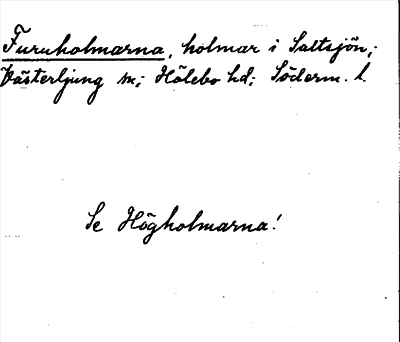 Furuholmarna, holmar i Saltsjön;
Västerljung sn; Hölebo hd; Söderm. l.
Se Högholmarna!